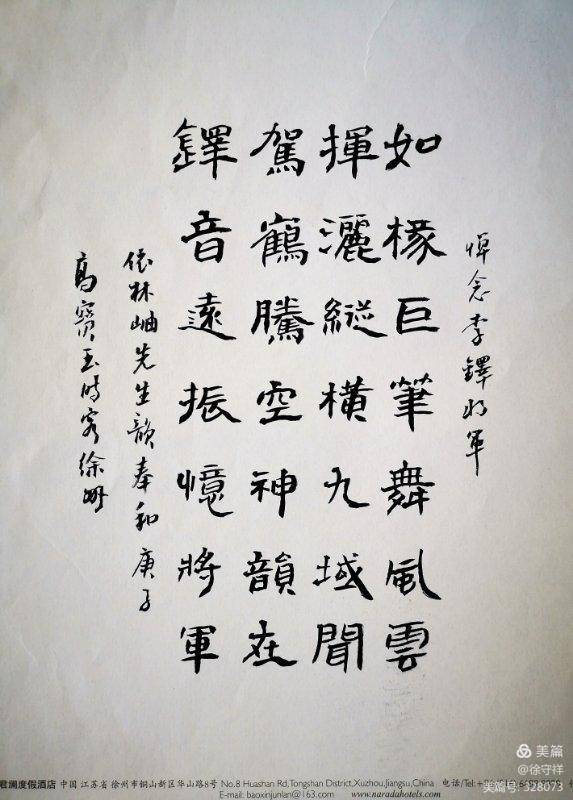 悼念李鐸將軍
如椽巨筆舞風雲
揮灑縱橫九域聞
駕鶴騰空神韻在
鐸音遠振憶將軍
依林岫先生韻奉和庚子
高寶玉時客徐州
君澜度假酒店 中国 江苏省 徐州市铜山新区华山路8号 No.8 Huashan Rd,Tongshan District,Xuzhou,Jiangsu,China 电话/Tel:+
E-mail: baoxinjunlan@163.com www.naradahotels.com
美篇
@徐守祥
美篇号:328073